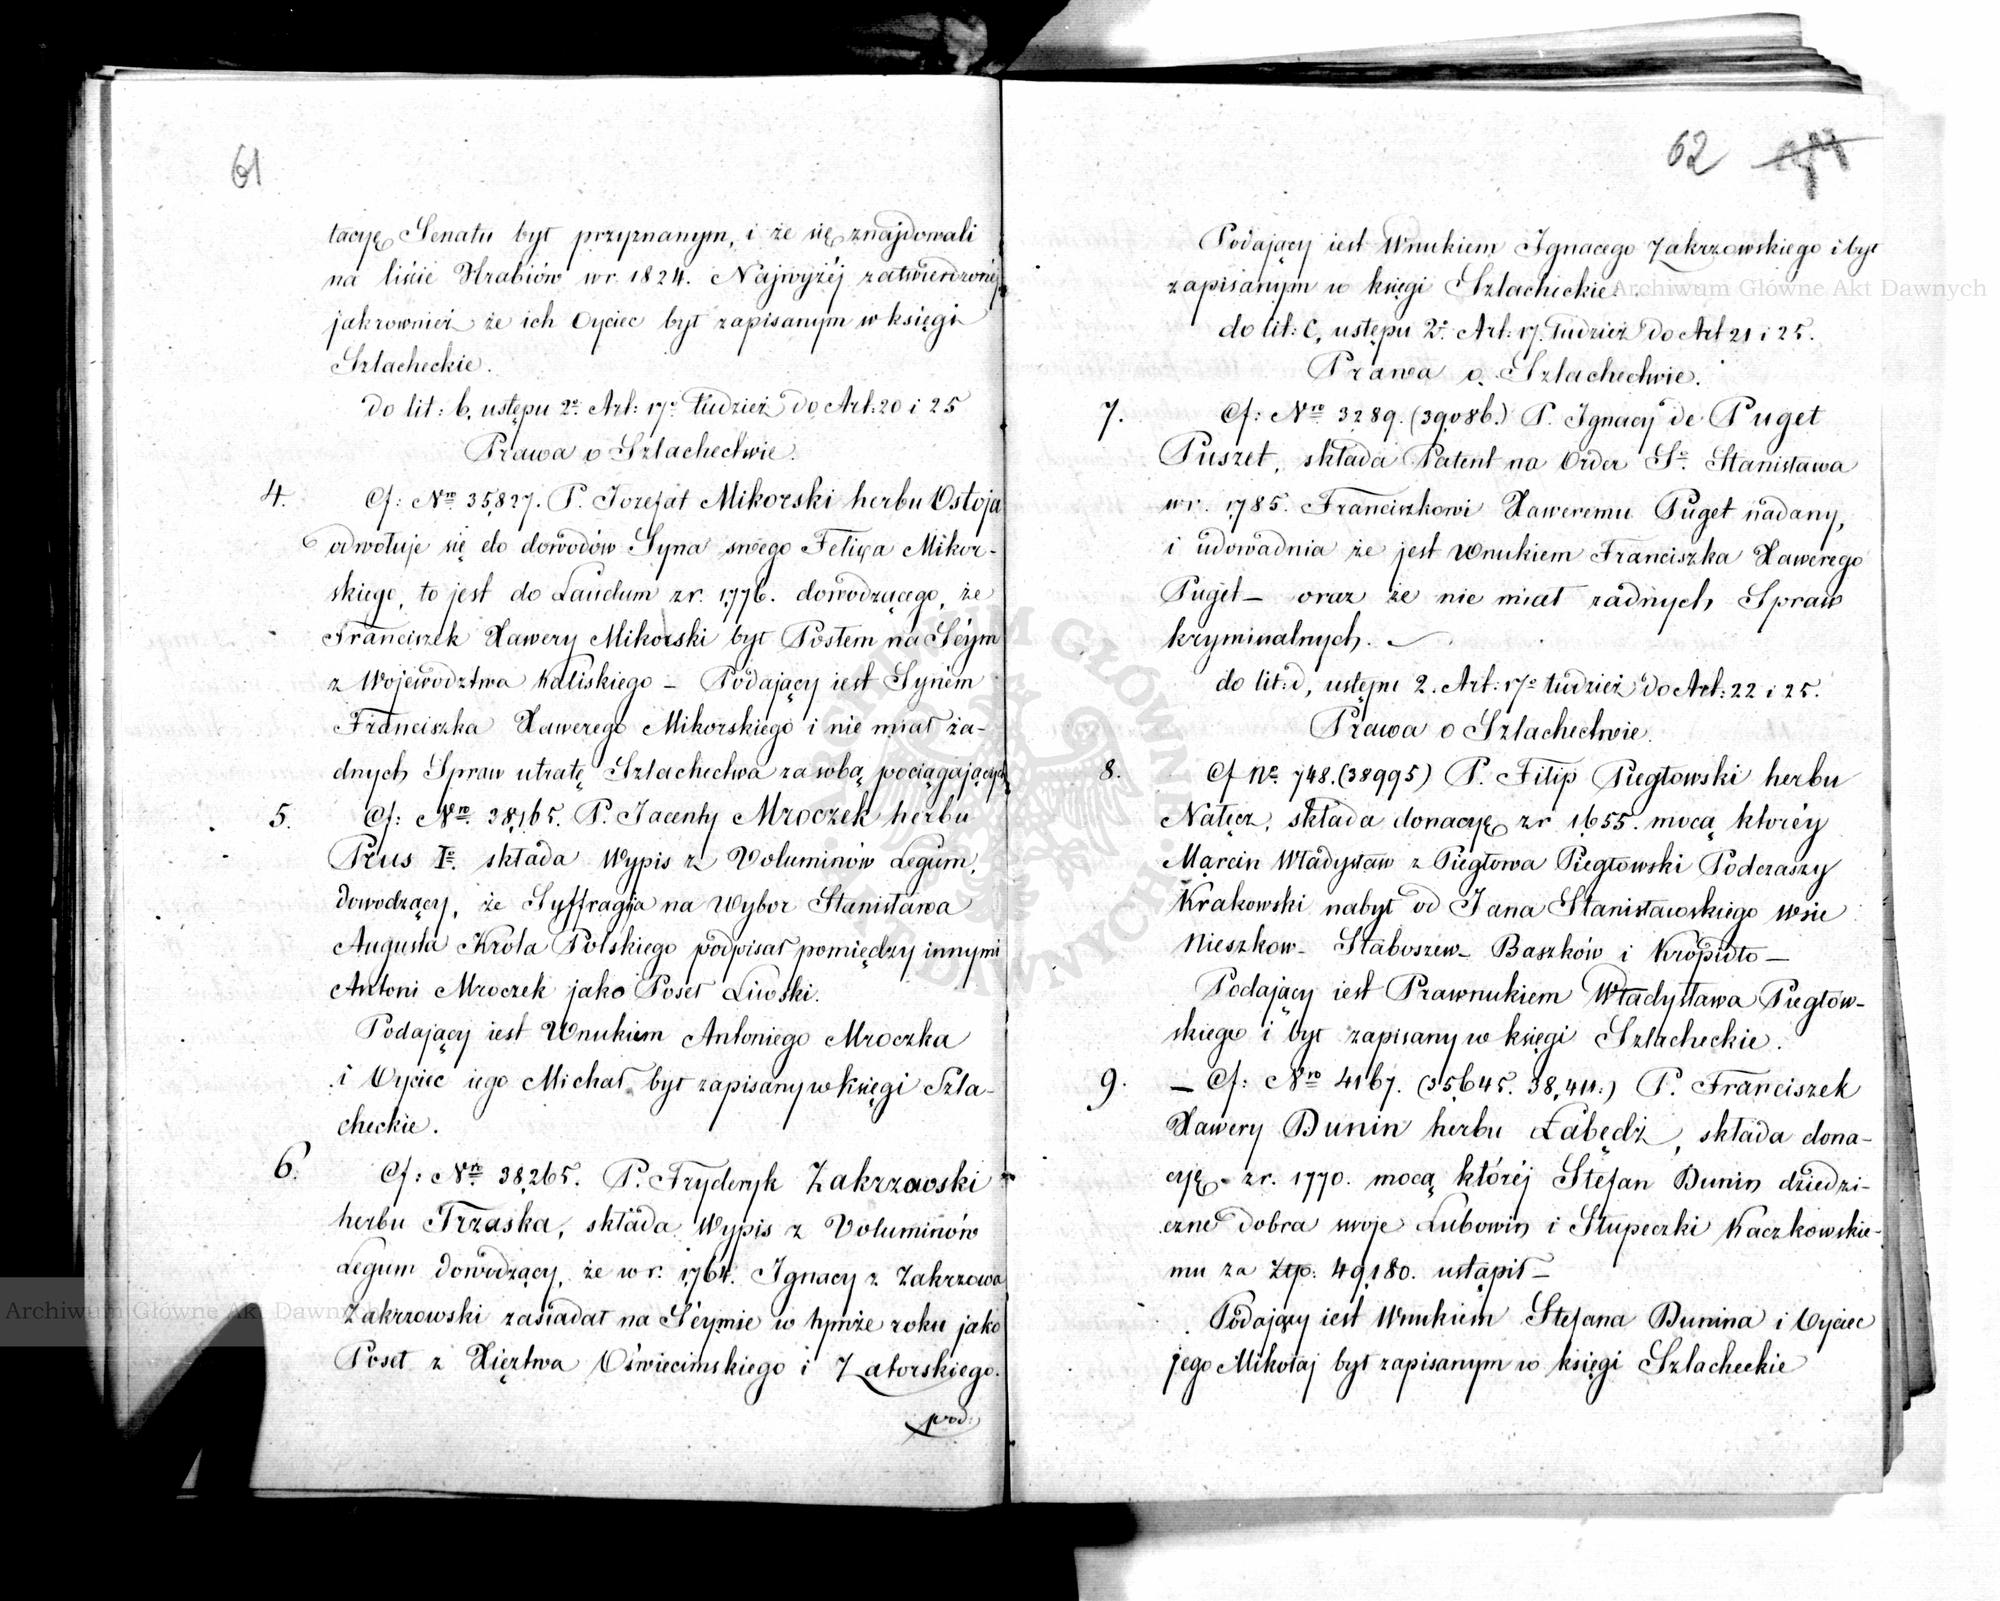 61
tacyę Senatu był przyznanym, i że się znajdowali
na liście Hrabiów w r. 1824. Najwyżéj zatwierdzonéj
jakrownież że ich Oyciec był zapisanym w księgi
Szlacheckie.
do lit: b, ustępu 2o. Art: 17o tudzież do Art: 20 i 25
Prawa o Szlachectwie.
4. Cf: Nro 35,827. P. Jozefat Mikorski herbu Ostoja
odwołuje się do dowodów Syna swego Felixa Mikor-
skiego, to jest do Laudum z r. 1776. dowodzącego, że
Franciszek Xawery Mikorski był Posłem na Séym
z Województwa Kaliskiego – Podający iest Synem
Franciszka Xawerego Mikorskiego i nie miał ża-
dnych Spraw utratę Szlachectwa za sobą pociągających
5. Cf: Nro. 38,165. P. Jacenty Mroczek herbu
Prus Io. składa Wypis z Voluminów Legum,
dowodzący, że Syffragia na Wybor Stanisława
Augusta Króla Polskiego podpisał pomiędzy innymi
Antoni Mroczek jako Poseł Liwski.
Podający iest Wnukiem Antoniego Mroczka
i Oyciec iego Michał był zapisany w księgi Szla-
checkie.
6. Cf: Nro 38,265. P. Fryderyk Zakrzowski
herbu Trzaska, składa Wypis z Voluminów
Legum dowodzący, że w r. 1764. Ignacy z Zakrzowa
Zakrzowski zasiadał na Séymie w tymże roku jako
Poseł z Xięztwa Oświecimskiego i Zatorskiego.
pod:
62
Podający iest Wnukiem Ignacego Zakrzowskiego i był
zapisanym w księgi Szlacheckie.
do lit: C, ustępu 2o. Art: 17. tudzież do Art 21 i 25.
Prawa o Szlachectwie.
7. Cf: Nro 3289. (39,086.) P. Ignacy de Puget
Puszet, składa Patent na Order So. Stanisława
w r. 1785. Franciszkowi Xaweremu Puget nadany,
i udowadnia że jest Wnukiem Franciszka Xawerego
Puget – oraz że nie miał żadnych Spraw
kryminalnych.
do lit: d, ustępu 2. Art: 17o tudzież do Art: 22 i 25.
Prawa o Szlachectwie.
8. Cf No. 748. (38995) P. Filip Piegłowski herbu
Nałęcz, składa donacyę z r 1655. mocą któréy
Marcin Władysław z Piegłowa Piegłowski Podczaszy
Krakowski nabył od Jana Stanisławskiego Wsie
Nieszkow – Słaboszew – Baszków i Kropidło –
Podający iest Prawnukiem Władysława Piegłow-
skiego i był zapisany w księgi Szlacheckie.
9. – Cf: Nro 4167. (35,645. 38,411.) P. Franciszek
Xawery Dunin herbu Łabędź, składa dona-
cyę z r. 1770. mocą któréj Stefan Dunin dziedzi-
czne dobra swoje Lubowin i Słupeczki Kaczkowskie-
mu za Złp: 49,180. ustąpił –
Podający iest Wnukiem Stefana Dunina i Oyciec
jego Mikołaj był zapisanym w księgi Szlacheckie
Archiwum Główne Akt Dawnych
Archiwum Główne Akt Dawnych
ARCHIWUM GŁÓWNE AKT DAWNYCH